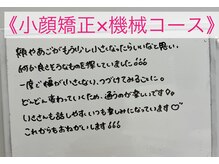 《小顔矯正×機械コース》
顔やあごがもう少し小さくなったらいいなと思い、
何か良さそうなものを探していました!!
一度で幅が小さくなり、つづけてみることに。
どんどん変わっていくため、通うのが楽しいです♪
いとさんも話しやすく、いつも楽しみになっています♡
これからもおねがいします!!!